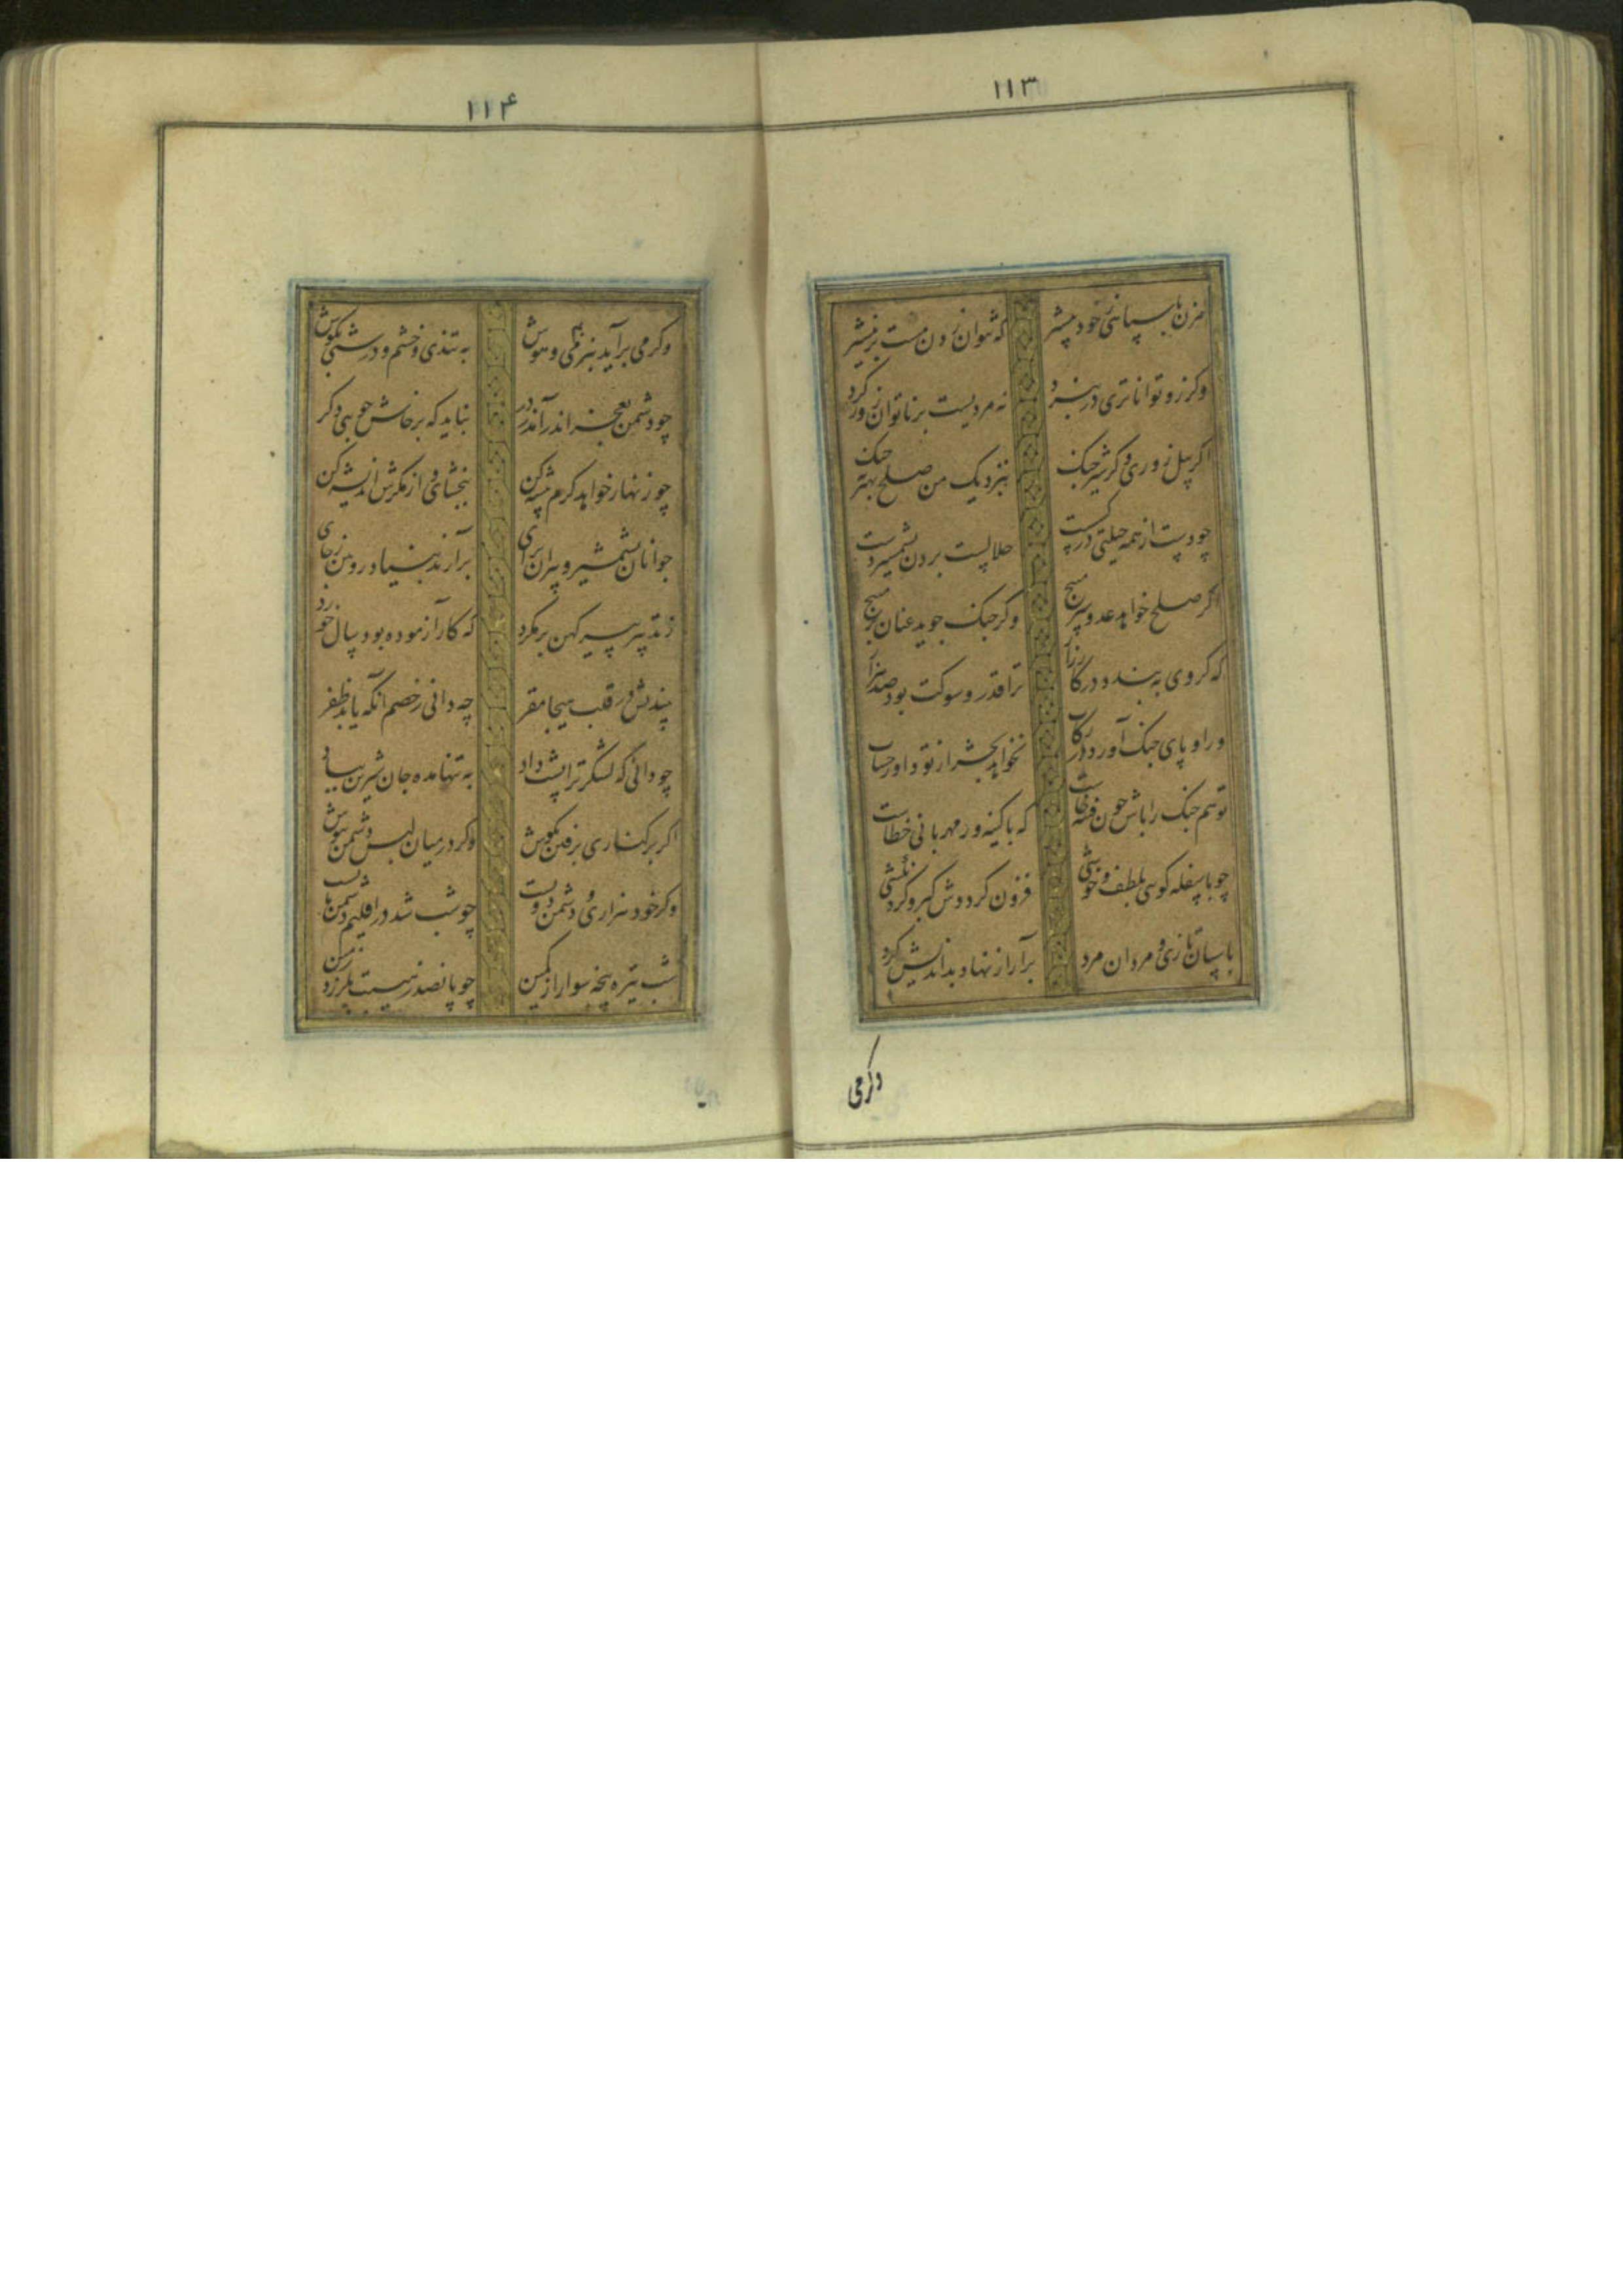 ۱۱۳
مزن با سپاهی ز خود بیشتر
که نتوان زدن مشت بر نیشتر
وکر زو تواناتری در نبرد
نه مردیست بر ناتوان زور کرد
اکر پیل زوری وکر شیر جنک
بنزدیک من صلح بهتر که جنک
چو دست از همه حیلتی در کسست
حلالست بردن بشمشیر دست
اکر صلح خواهد عدو سر مپیچ
وکر جنک جوید عنان بر مپیچ
که کر وی ببندد در کارزار
ترا قدر و شوکت بود صد هزار
ور او پای جنک آورد در رکاب
نخواهد بحشر از تو داور حساب
تو هم جنک را باش چون فتنه خاست
که با کینه ور مهربانی خطاست
چو با سفله کویی بلطف و خوشی
فزون کرددش کبر و کردنکشی
باسپان تازی و مردان مرد
برآر از نهاد بداندیش کرد
وکر می
۱۱۴
وکر می برآید بنرمی و هوش
به تندی و خشم و درشتی مکوش
چو دشمن بعجز اندر آمد ز در
نباید که پرخاش جویی دکر
چو زنهار خواهد کرم پیشه کن
ببخشای و از مکرش اندیشه کن
جوانان بشمشیر و پیران برای
برآرند بنیاد رویین ز جای
ز تدبیر پیر کهن بر مکرد
که کار آزموده بود سال خورد
بیندیش در قلب هیجا مفر
چه دانی ز خصم آنکه یابد ظفر
چو دانی که لشکر ترا پشت داد
به تنها مده جان شیرین بباد
اکر بر کناری برفتن بکوش
وکر در میان لبس دشمن بپوش
وکر خود هزاری و دشمن دویست
چو شب شد در اقلیم دشمن مایست
شب تیره پنجه سوار از کمین
چو پانصد ز هیبت بلرزد زمین